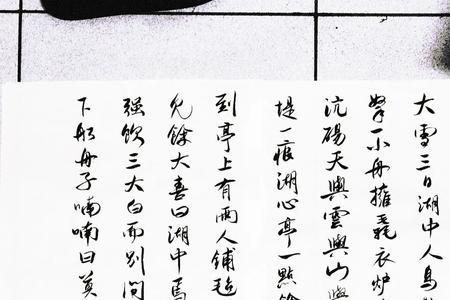 大雪三日湖中人鳥
拏一小舟擁毳衣炉
沆碭天與雲與山與
堤一痕湖心亭一點餘
到亭上有兩人鋪毡
見餘大喜曰湖中焉
强飲三大白而别問
下船舟子喃喃曰莫